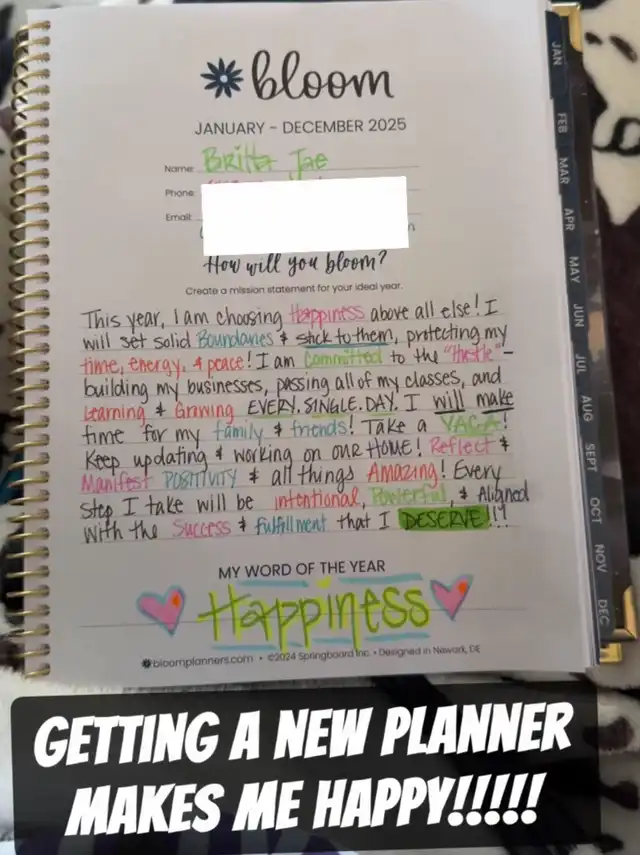 bloom
JANUARY - DECEMBER 2025
Name: Britta Jae
Phone:
Email:
How will you bloom?
Create a mission statement for your ideal year.
This year, I am choosing Happiness above all else! I
will set solid Boundaries & stick to them, protecting my
time, energy, & peace! I am Committed to the "Hustle" -
building my businesses, passing all of my classes, and
Learning & Growing EVERY. SINGLE. DAY. I will make
time for my family & friends! Take a VACA!
Keep updating & working on our HOME! Reflect &
Manifest POSITIVITY & all things Amazing! Every
step I take will be intentional, Powerful, & Aligned
with the Success & fulfillment that I DESERVE!!!
MY WORD OF THE YEAR
Happiness
bloomplanners.com • ©2024 Springboard Inc. • Designed in Newark, DE
JAN
FEB
MAR
APR
MAY
JUN
JUL
AUG
SEPT
OCT
NOV
DEC
GETTING A NEW PLANNER
MAKES ME HAPPY!!!!!